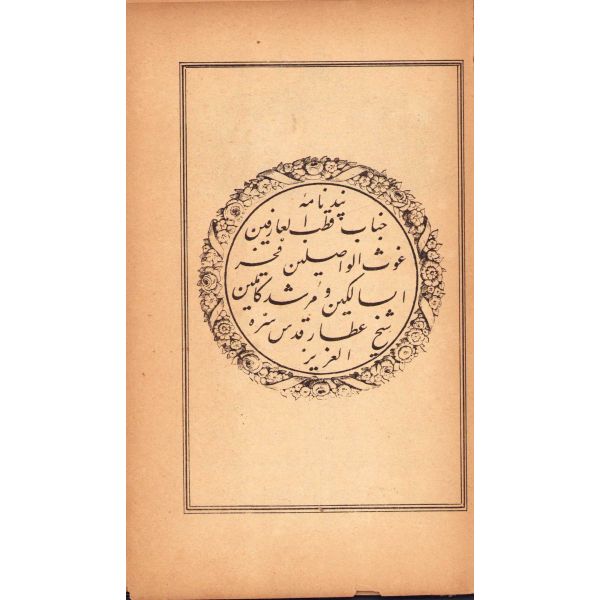 پند نامهٔ
جناب قطب العارفین
غوث الواصلین فخر
السالکین و مرشد کاملین
شیخ عطار قدس سره
العزیز